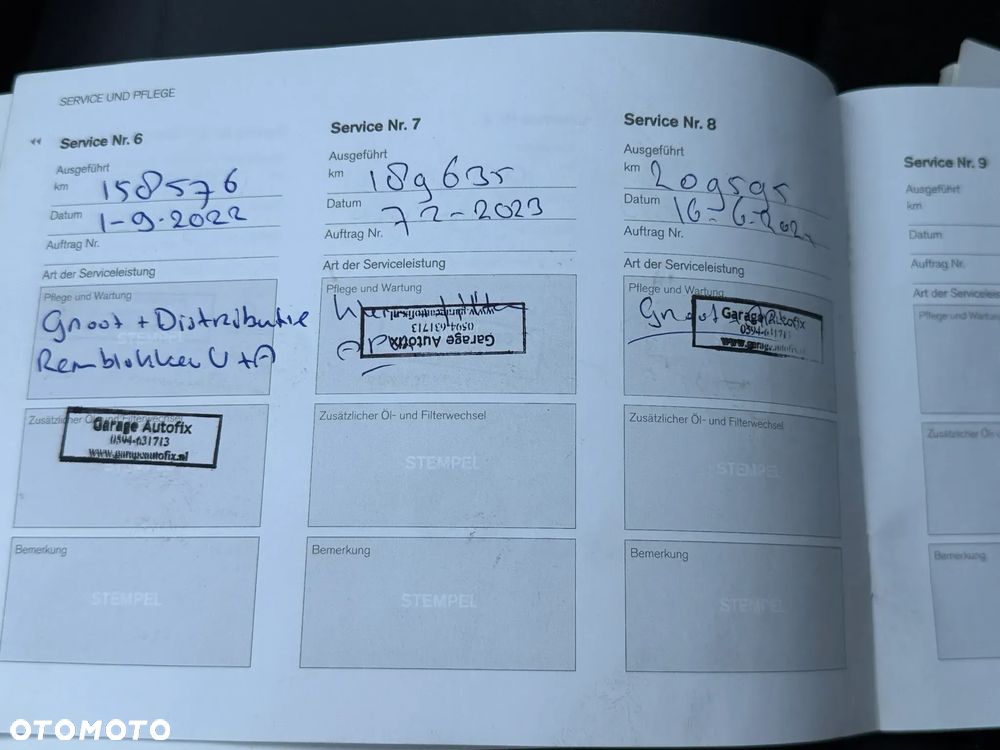 SERVICE UND PFLEGE
Service Nr. 6
Ausgeführt
km 158576
Datum 1-9-2022
Auftrag Nr.
Art der Serviceleistung
Pflege und Wartung
Groot + Distributie
Remblokken V + A
Zusätzlicher Öl- und Filterwechsel
Garage Autofix
0594-631713
www.garageautofix.nl
STEMPEL
Bemerkung
STEMPEL
Service Nr. 7
Ausgeführt
km 189635
Datum 72-2023
Auftrag Nr.
Art der Serviceleistung
Pflege und Wartung
Garage Autofix
0594-631713
www.garageautofix.nl
Zusätzlicher Öl- und Filterwechsel
STEMPEL
Bemerkung
STEMPEL
Service Nr. 8
Ausgeführt
km 209595
Datum 16-6-202
Auftrag Nr.
Art der Serviceleistung
Pflege und Wartung
Groot
Garage Autofix
0594-631713
www.garageautofix.nl
Zusätzlicher Öl- und Filterwechsel
STEMPEL
Bemerkung
STEMPEL
Service Nr. 9
Ausgeführt
km
Datum
Auftrag Nr.
Art der Serviceleis
Pflege und Wartun
Zusätzlicher Öl- u
Bemerkung
OTOMOTO